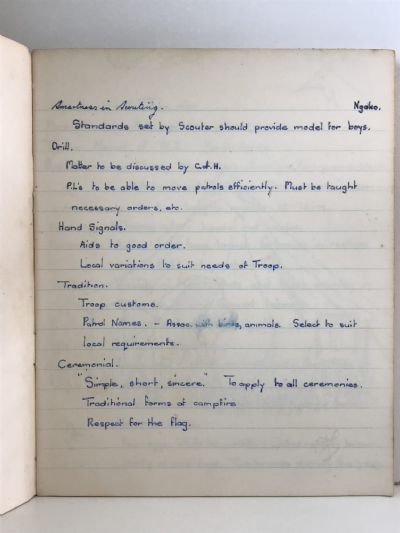 Smartness in Scouting. Ngaio.
Standards set by Scouter should provide model for boys.
Drill.
Matter to be discussed by C.o.H.
P.L's to be able to move patrols efficiently. Must be taught
necessary orders, etc.
Hand Signals.
Aids to good order.
Local variations to suit needs of Troop.
Tradition.
Troop customs.
Patrol Names. - Assoc. with birds, animals. Select to suit
local requirements.
Ceremonial.
"Simple, short, sincere." To apply to all ceremonies.
Traditional forms at campfire
Respect for the flag.